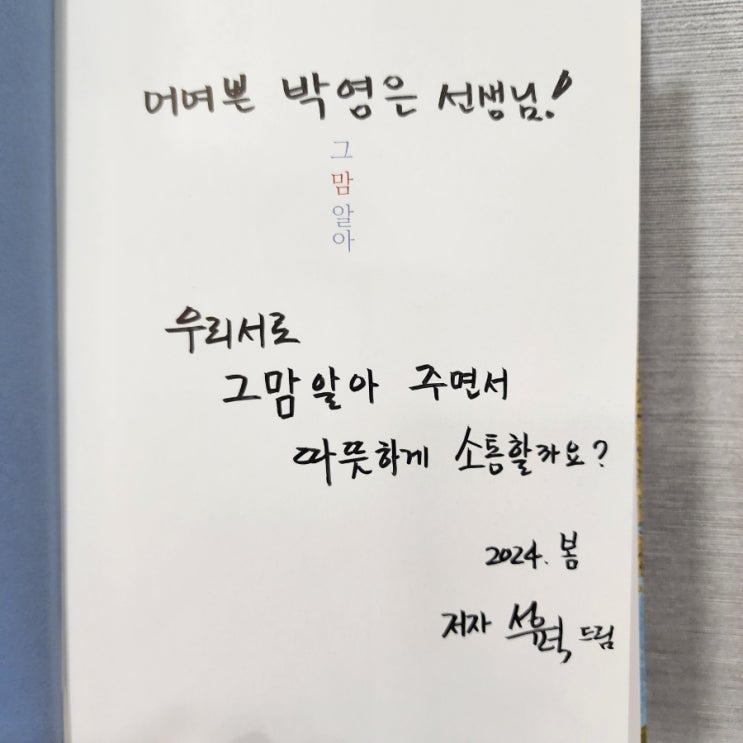 어여쁜 박영은 선생님!
그
맘
알
아
우리서로
그맘알아 주면서
따뜻하게 소통할까요?
2024. 봄
저자 드림